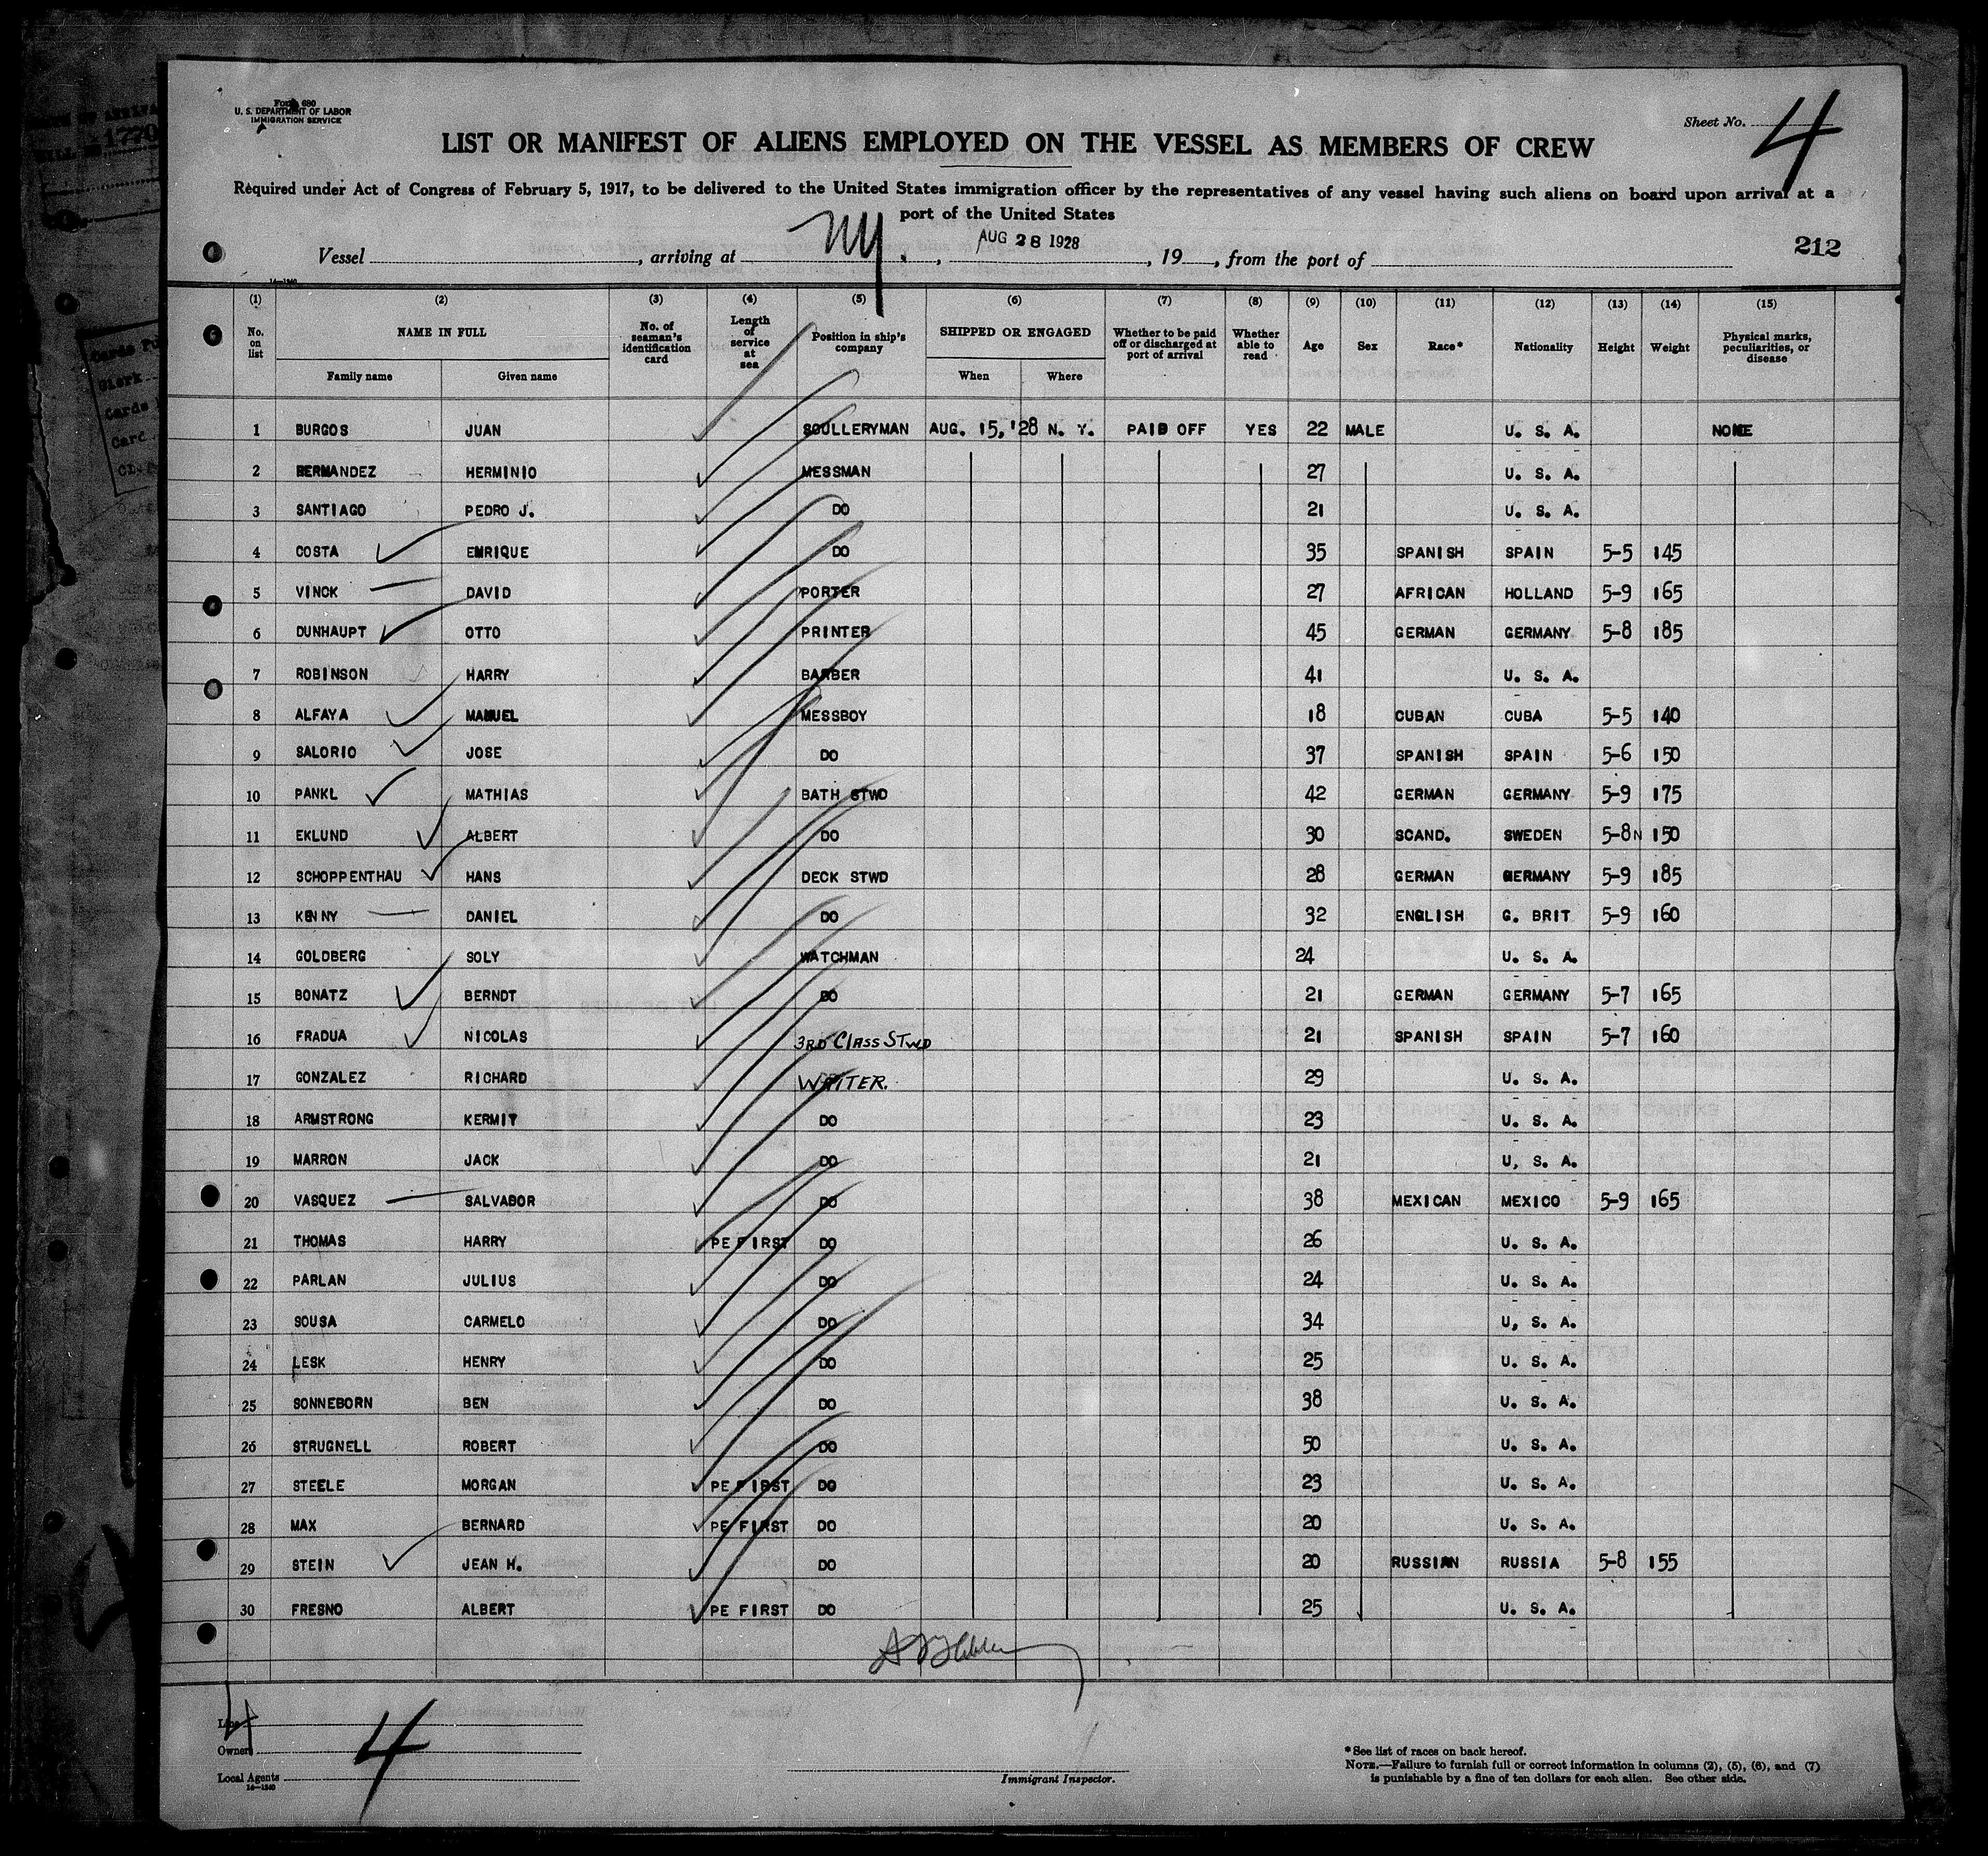 Form 680
U. S. DEPARTMENT OF LABOR
IMMIGRATION SERVICE
Sheet No. 4
LIST OR MANIFEST OF ALIENS EMPLOYED ON THE VESSEL AS MEMBERS OF CREW
Required under Act of Congress of February 5, 1917, to be delivered to the United States immigration officer by the representatives of any vessel having such aliens on board upon arrival at a
port of the United States
Vessel , arriving at NY. , AUG 28 1928 , 19 , from the port of
212
14—1240
(1) (2) (3) (4) (5) (6) (7) (8) (9) (10) (11) (12) (13) (14) (15)
No. on list NAME IN FULL No. of seaman's identification card Length of service at sea Position in ship's company SHIPPED OR ENGAGED Whether to be paid off or discharged at port of arrival Whether able to read Age Sex Race* Nationality Height Weight Physical marks, peculiarities, or disease
Family name Given name When Where
1 BURGOS JUAN SCULLERYMAN AUG. 15, '28 N. Y. PAID OFF YES 22 MALE U. S. A. NONE
2 HERNANDEZ HERMINIO MESSMAN 27 U. S. A.
3 SANTIAGO PEDRO J. DO 21 U. S. A.
4 COSTA ENRIQUE DO 35 SPANISH SPAIN 5-5 145
5 VINCK DAVID PORTER 27 AFRICAN HOLLAND 5-9 165
6 DUNHAUPT OTTO PRINTER 45 GERMAN GERMANY 5-8 185
7 ROBINSON HARRY BARBER 41 U. S. A.
8 ALFAYA MANUEL MESSBOY 18 CUBAN CUBA 5-5 140
9 SALORIO JOSE DO 37 SPANISH SPAIN 5-6 150
10 PANKL MATHIAS BATH STWD 42 GERMAN GERMANY 5-9 175
11 EKLUND ALBERT DO 30 SCAND. SWEDEN 5-8 150
12 SCHOPPENTHAU HANS DECK STWD 28 GERMAN GERMANY 5-9 185
13 KENNY DANIEL DO 32 ENGLISH G. BRIT 5-9 160
14 GOLDBERG SOLY WATCHMAN 24 U. S. A.
15 BONATZ BERNDT DO 21 GERMAN GERMANY 5-7 165
16 FRADUA NICOLAS 3RD CLASS STWD 21 SPANISH SPAIN 5-7 160
17 GONZALEZ RICHARD WRITER. 29 U. S. A.
18 ARMSTRONG KERMIT DO 23 U. S. A.
19 MARRON JACK DO 21 U, S. A.
20 VASQUEZ SALVADOR DO 38 MEXICAN MEXICO 5-9 165
21 THOMAS HARRY PE FIRST DO 26 U. S. A.
22 PARLAN JULIUS DO 24 U. S. A.
23 SOUSA CARMELO DO 34 U, S. A.
24 LESK HENRY DO 25 U. S. A.
25 SONNEBORN BEN DO 38 U. S. A.
26 STRUGNELL ROBERT DO 50 U. S. A.
27 STEELE MORGAN PE FIRST DO 23 U. S. A.
28 MAX BERNARD PE FIRST DO 20 U. S. A.
29 STEIN JEAN H. DO 20 RUSSIAN RUSSIA 5-8 155
30 FRESNO ALBERT PE FIRST DO 25 U. S. A.
4
4
Line
Owner
Local Agents
14—1240
Immigrant Inspector.
*See list of races on back hereof.
NOTE.—Failure to furnish full or correct information in columns (2), (5), (6), and (7)
is punishable by a fine of ten dollars for each alien. See other side.